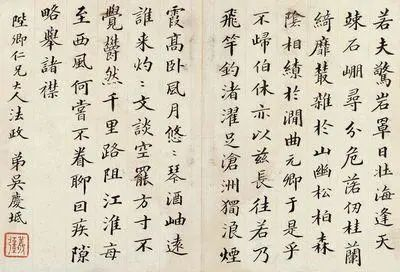 若夫驚岩罩日壯海逢天
竦石崩尋分危落仞桂蘭
綺靡叢雜於山幽松柏森
陰相繚於澗曲元卿于是乎
不歸伯休亦以茲長往若乃
飛竿釣渚濯足滄洲獨浪煙
霞高臥風月悠〻琴酒岫遠
誰来灼〻文談空罷方寸不
覺欝然千里路阻江淮每
至西風何嘗不眷聊因疾隙
略舉諸襟
陛卿仁兄大人法政 弟吳慶坻